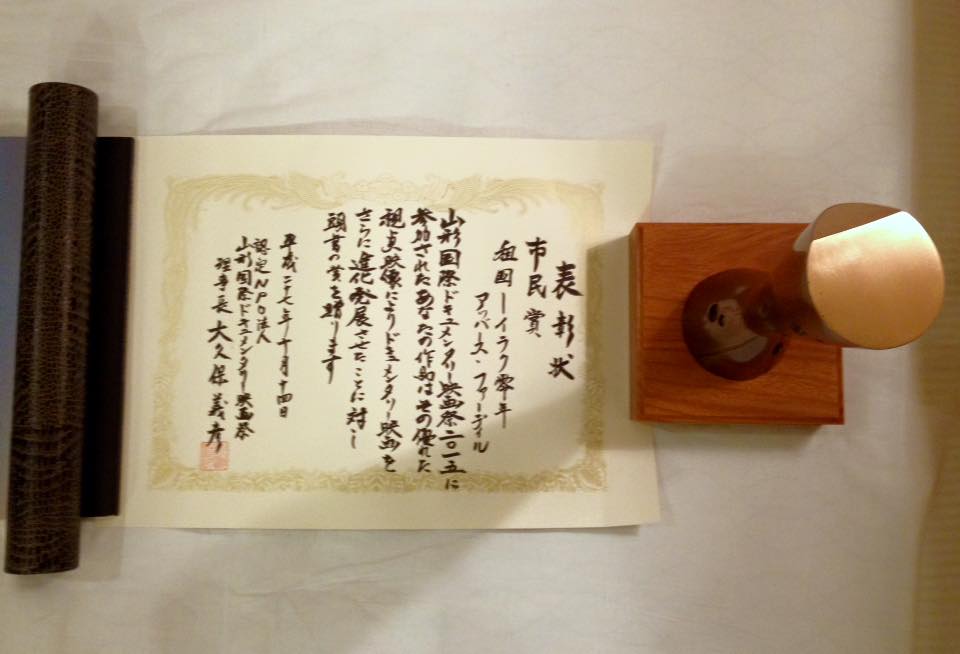 表彰状
市民賞
祖国ーイラク零年
アッバース・ファーディル
山形国際ドキュメンタリー映画祭二〇一五に
参加されたあなたの作品はその優れた
視点映像によりドキュメンタリー映画を
さらに進化発展させたことに対し
頭書の賞を贈ります
平成二十七年十月十四日
認定NPO法人
山形国際ドキュメンタリー映画祭
理事長 大久保義彦